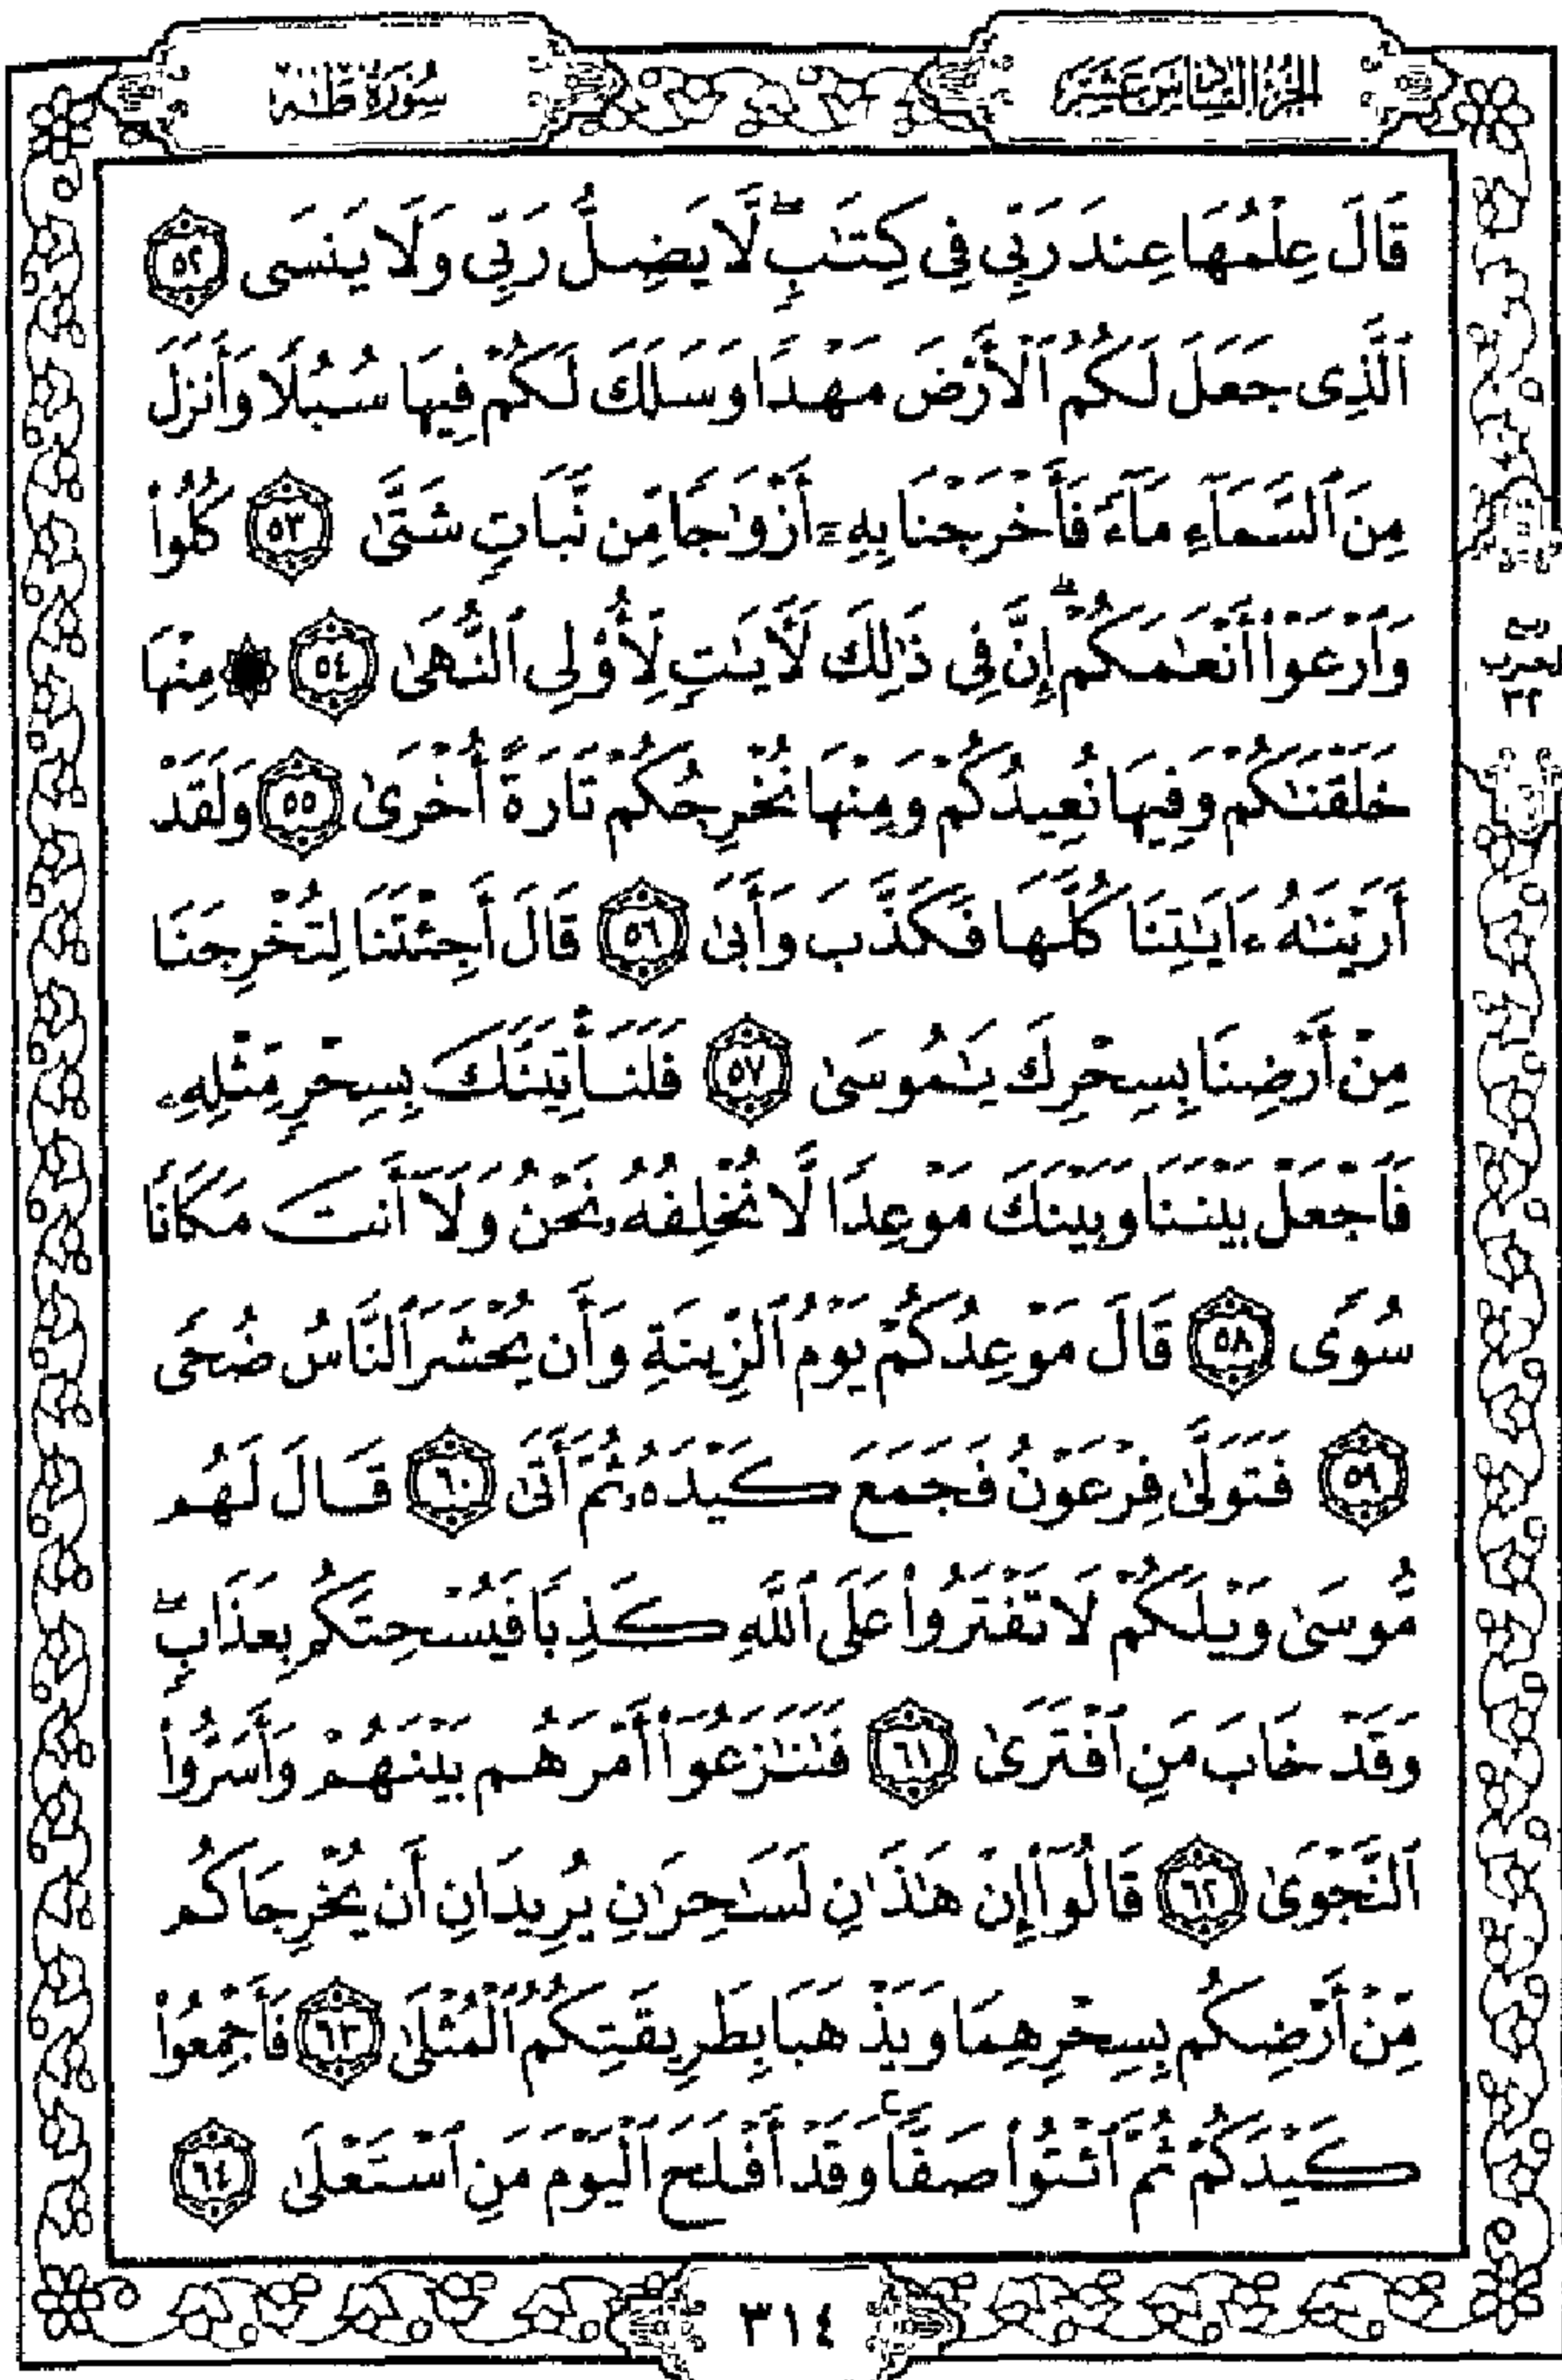 الجزء السادس عشر
سورة طه
قَالَ عِلْمُهَا عِندَ رَبِّي فِي كِتَٰبٍۖ لَّا يَضِلُّ رَبِّي وَلَا يَنسَى ٥٢
ٱلَّذِي جَعَلَ لَكُمُ ٱلْأَرْضَ مَهْدًا وَسَلَكَ لَكُمْ فِيهَا سُبُلًا وَأَنزَلَ
مِنَ ٱلسَّمَآءِ مَآءً فَأَخْرَجْنَا بِهِۦٓ أَزْوَٰجًا مِّن نَّبَاتٍ شَتَّىٰ ٥٣ كُلُوا۟
وَٱرْعَوْا۟ أَنْعَٰمَكُمْۗ إِنَّ فِي ذَٰلِكَ لَءَايَٰتٍ لِّأُو۟لِي ٱلنُّهَىٰ ٥٤ ۞ مِنْهَا
خَلَقْنَٰكُمْ وَفِيهَا نُعِيدُكُمْ وَمِنْهَا نُخْرِجُكُمْ تَارَةً أُخْرَىٰ ٥٥ وَلَقَدْ
أَرَيْنَٰهُ ءَايَٰتِنَا كُلَّهَا فَكَذَّبَ وَأَبَىٰ ٥٦ قَالَ أَجِئْتَنَا لِتُخْرِجَنَا
مِنْ أَرْضِنَا بِسِحْرِكَ يَٰمُوسَىٰ ٥٧ فَلَنَأْتِيَنَّكَ بِسِحْرٍ مِّثْلِهِۦ
فَٱجْعَلْ بَيْنَنَا وَبَيْنَكَ مَوْعِدًا لَّا نُخْلِفُهُۥ نَحْنُ وَلَآ أَنتَ مَكَانًا
سُوًى ٥٨ قَالَ مَوْعِدُكُمْ يَوْمُ ٱلزِّينَةِ وَأَن يُحْشَرَ ٱلنَّاسُ ضُحًى
٥٩ فَتَوَلَّىٰ فِرْعَوْنُ فَجَمَعَ كَيْدَهُۥ ثُمَّ أَتَىٰ ٦٠ قَالَ لَهُم
مُّوسَىٰ وَيْلَكُمْ لَا تَفْتَرُوا۟ عَلَى ٱللَّهِ كَذِبًا فَيُسْحِتَكُم بِعَذَابٍۖ
وَقَدْ خَابَ مَنِ ٱفْتَرَىٰ ٦١ فَتَنَٰزَعُوٓا۟ أَمْرَهُم بَيْنَهُمْ وَأَسَرُّوا۟
ٱلنَّجْوَىٰ ٦٢ قَالُوٓا۟ إِنْ هَٰذَٰنِ لَسَٰحِرَٰنِ يُرِيدَانِ أَن يُخْرِجَاكُم
مِّنْ أَرْضِكُم بِسِحْرِهِمَا وَيَذْهَبَا بِطَرِيقَتِكُمُ ٱلْمُثْلَىٰ ٦٣ فَأَجْمِعُوا۟
كَيْدَكُمْ ثُمَّ ٱئْتُوا۟ صَفًّاۚ وَقَدْ أَفْلَحَ ٱلْيَوْمَ مَنِ ٱسْتَعْلَىٰ ٦٤
٣١٤